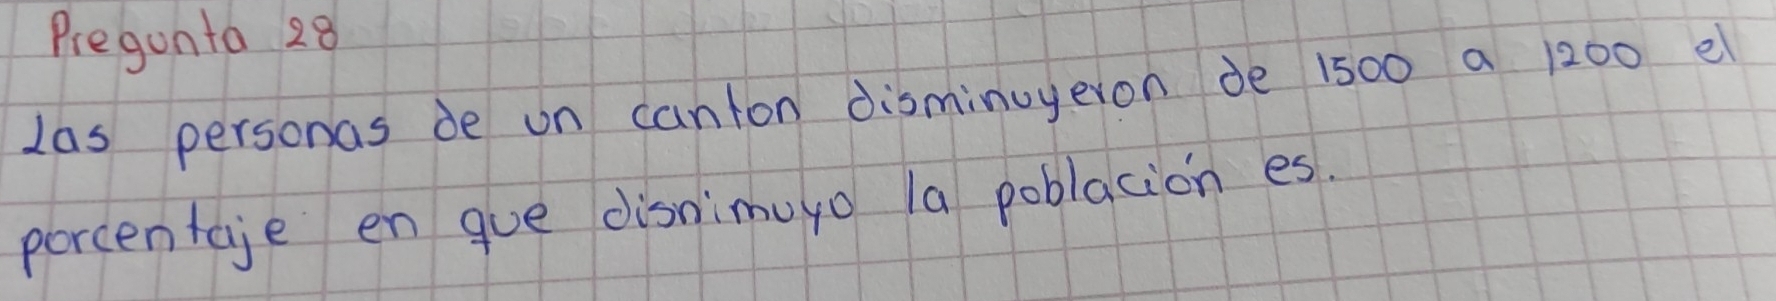 Pregunta 28
Las personas de un canton disminuyeron de 1500 a 1200 el
porcentaje en que disnimuyo la población es.